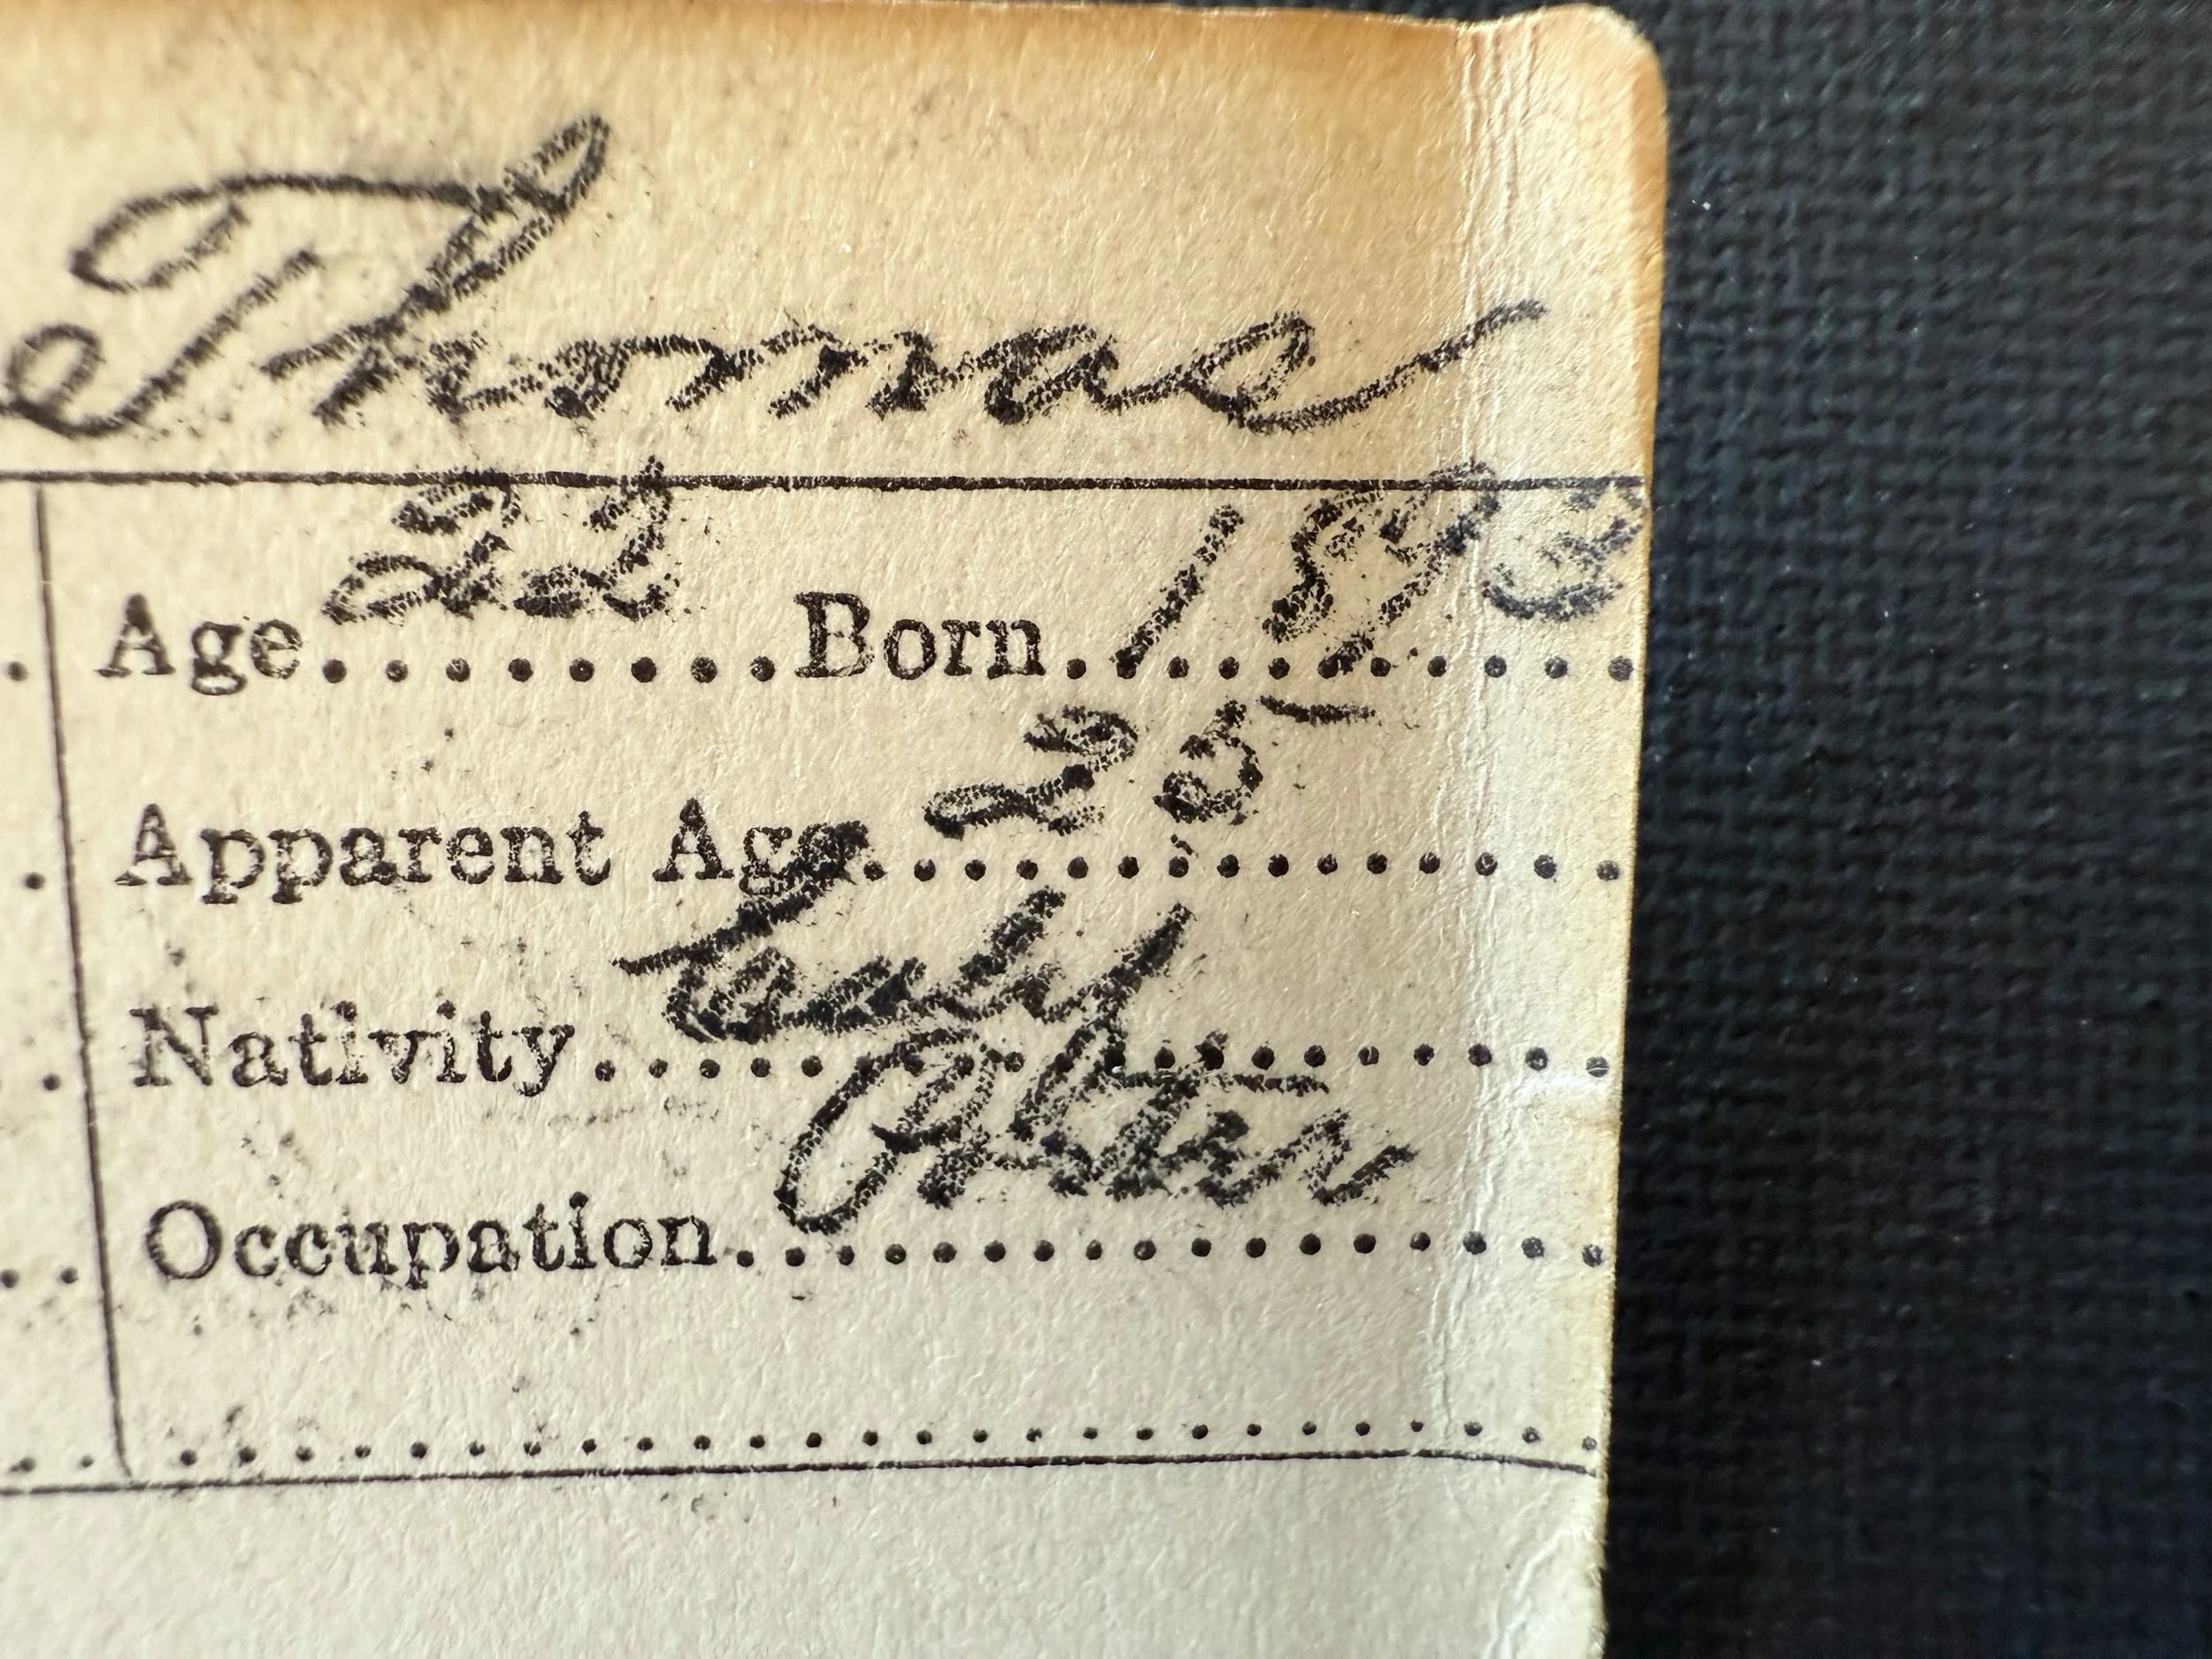 Thomas
Age 22 Born 1893
Apparent Age 25
Nativity
Occupation